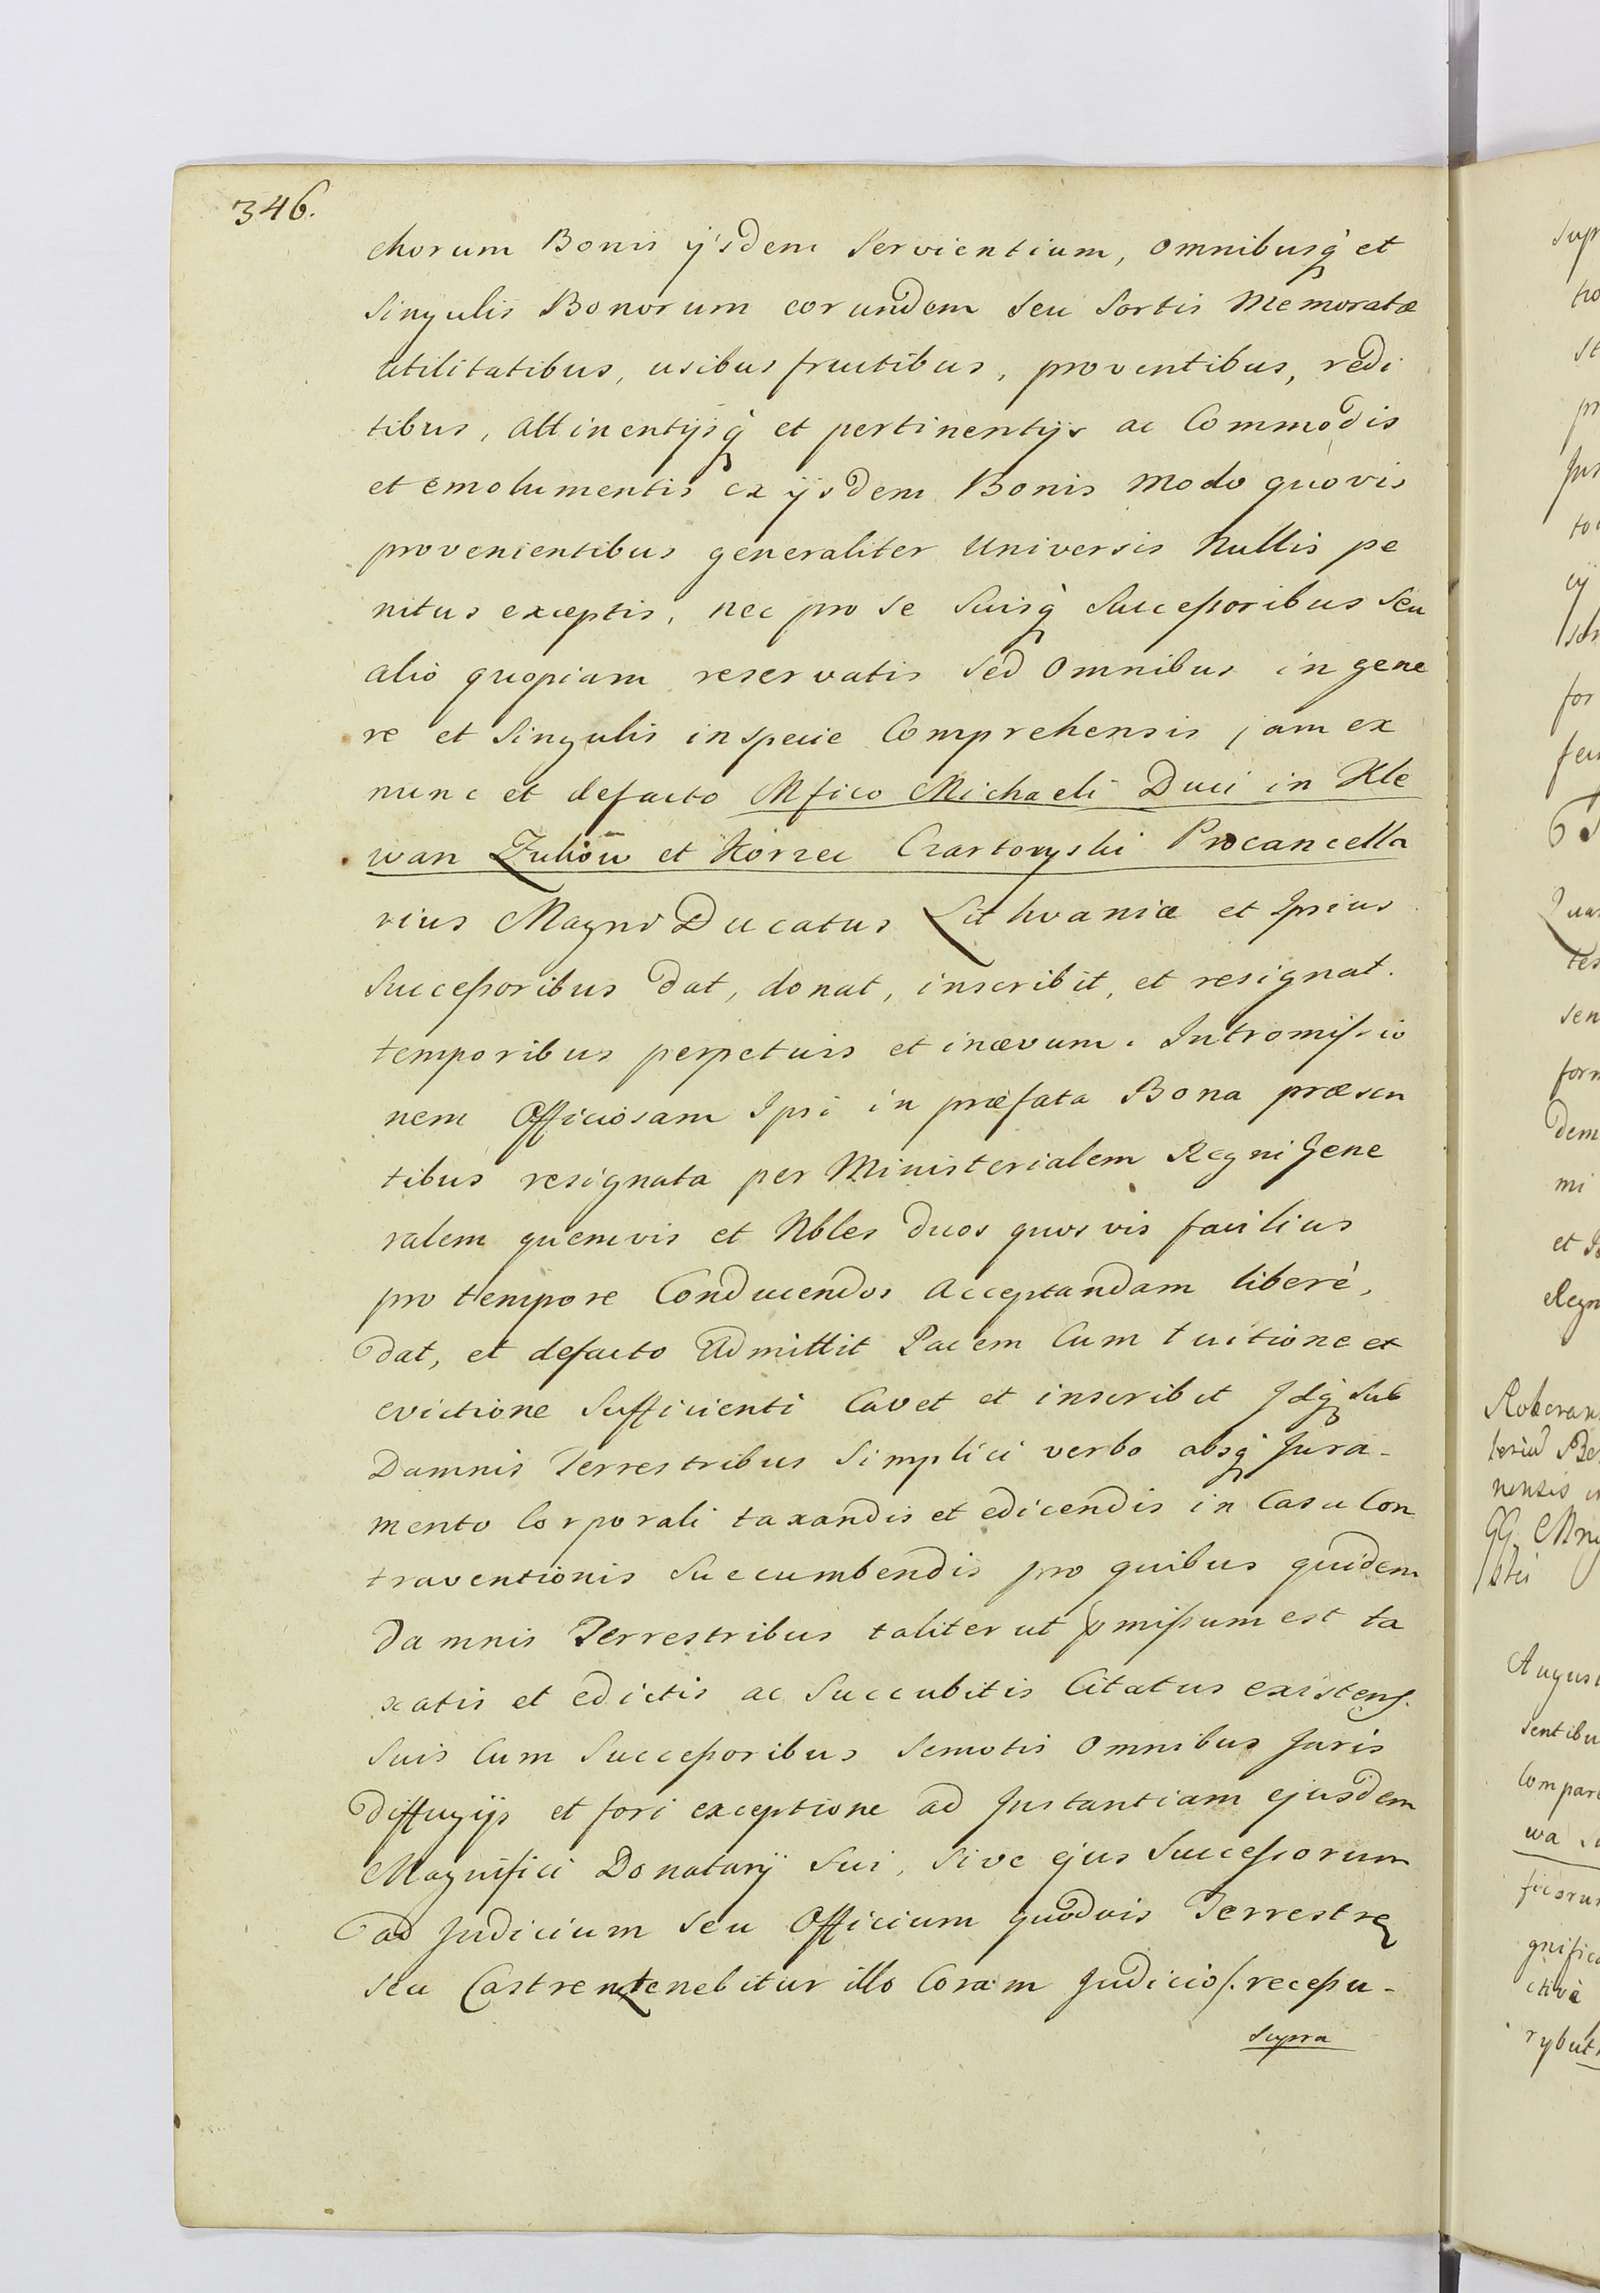 346.
chorum Bonis ijsdem Servientium, omnibusq́ et
Singulis Bonorum eorundem seu Sortis Memoratæ
utilitatibus, usibus fructibus, proventibus, redi
tibus, attinentijsq́ et pertinentijs ac Commodis
et emolumentis ex ijsdem Bonis Modo quovis
provenientibus generaliter Universis Nullis pe
nitus exceptis, nec pro se Suisq́ Succeſsoribus seu
alio quopiam reservatis sed omnibus in gene
re et Singulis in specie Comprehensis jam ex
nunc et defacto Mfico Michaeli Duci in Kle
wan Zukow et Korzec Czartoryski Procancella
rius Magni Ducatus Lithvaniæ et Ipsius
Succeſsoribus dat, donat, inscribit, et resignat.
temporibus perpetuis et inævum. Intromiſsio
nem Officiosam Ipsi in præfata Bona præsen
tibus resignata per Ministerialem Regni Gene
ralem quemvis et Nbles duos quosvis facilius
pro tempore Conducendos Acceptandam liberè,
dat, et defacto Admittit Pacem Cum tuitione et
evictione Sufficienti Cavet et inscribit Idq́ Sub
Damnis Terrestribus Simplici verbo absq́ Jura-
mento Corporali taxandis et edicendis in Casu Con
traventionis Succumbendis pro quibus quidem
Damnis Terrestribus taliter ut pmiſsum est ta
xatis et edictis ac Succubitis Citatus existens.
Suis Cum Succeſsoribus Semotis omnibus Juris
diffugijs et fori exceptione ad Instantiam ejusdem
Magnifici Donatarij Sui, Sive ejus Succeſsorum
ad Judicium Seu Officium quodvis Terrestre
seu Castren tenebitur illo Coram Judicio /.receſsu-
supra